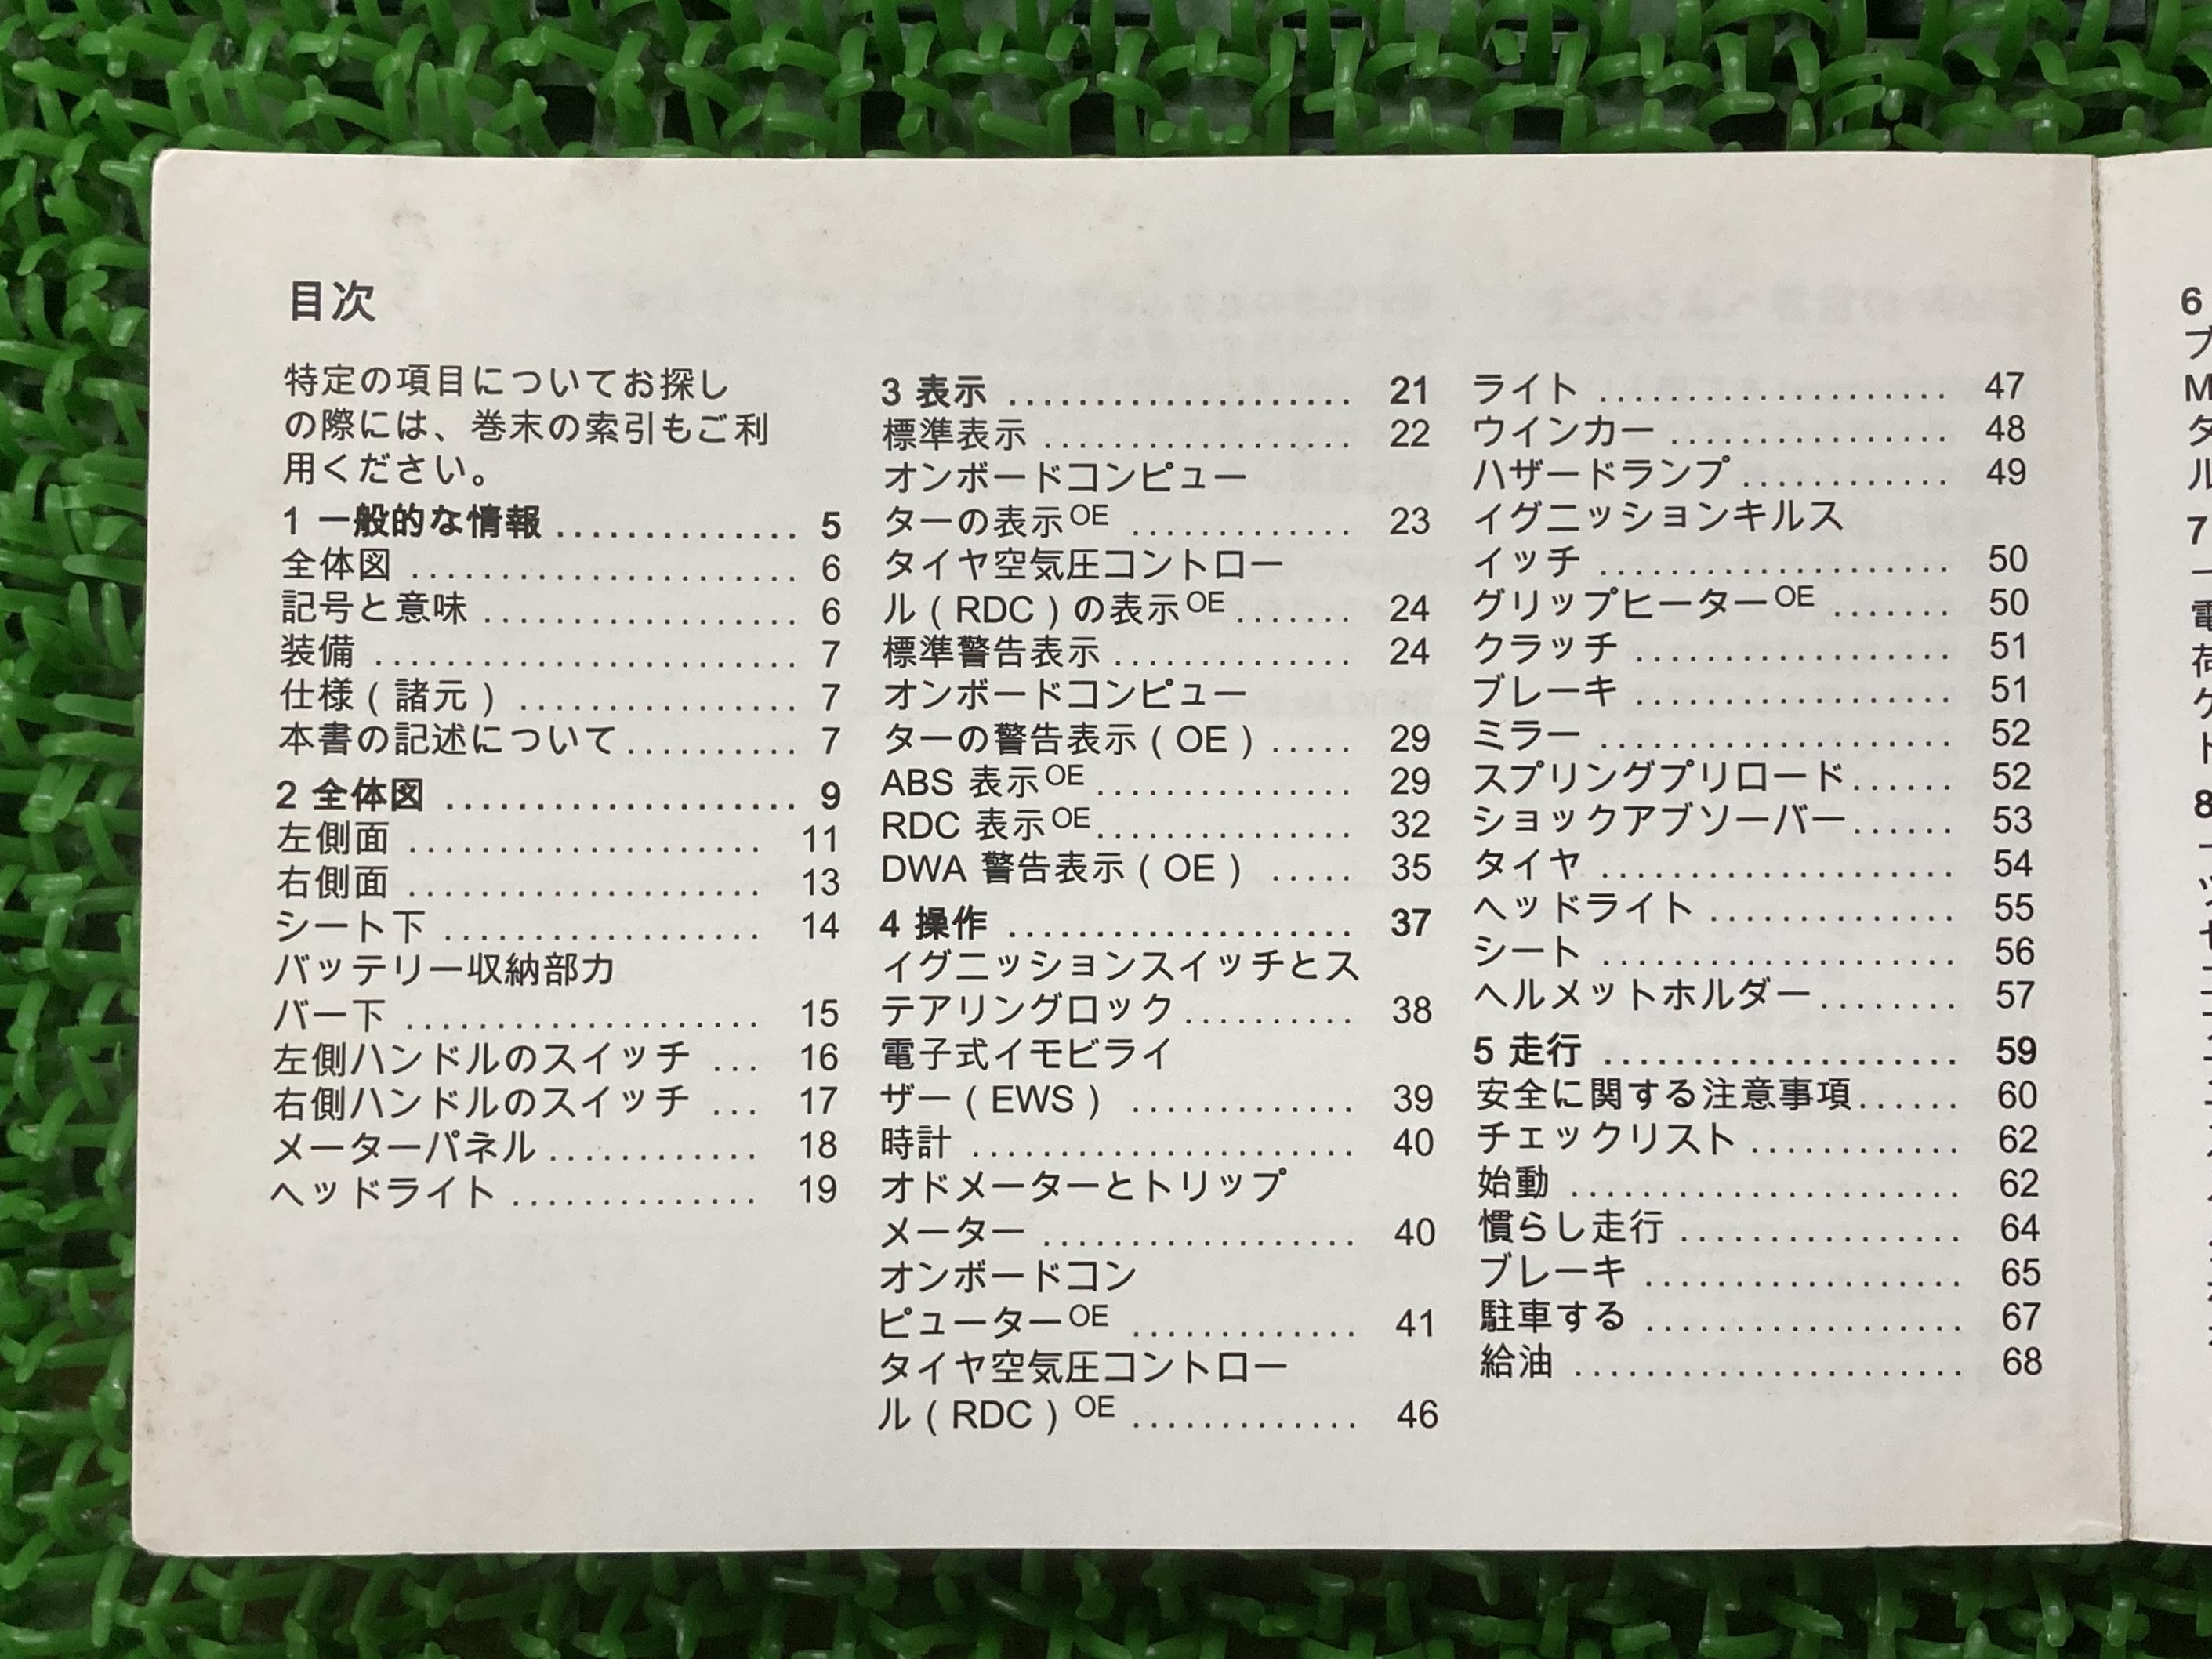 目次
特定の項目についてお探し
の際には、巻末の索引もご利
用ください。
1 一般的な情報 .............. 5
全体図 ...................... 6
記号と意味 .................. 6
装備 ........................ 7
仕様(諸元) ................ 7
本書の記述について .......... 7
2 全体図 .................... 9
左側面 .................... 11
右側面 .................... 13
シート下 .................. 14
バッテリー収納部カ
バー下 .................... 15
左側ハンドルのスイッチ ... 16
右側ハンドルのスイッチ ... 17
メーターパネル ............ 18
ヘッドライト .............. 19
3 表示 ................... 21
標準表示 ................. 22
オンボードコンピュー
ターの表示OE ............. 23
タイヤ空気圧コントロー
ル(RDC)の表示OE ....... 24
標準警告表示 ............. 24
オンボードコンピュー
ターの警告表示(OE) ..... 29
ABS 表示OE .............. 29
RDC 表示OE .............. 32
DWA 警告表示(OE) ..... 35
4 操作 ................... 37
イグニッションスイッチとス
テアリングロック .......... 38
電子式イモビライ
ザー(EWS) ............. 39
時計 ..................... 40
オドメーターとトリップ
メーター .................. 40
オンボードコン
ピューターOE ............. 41
タイヤ空気圧コントロー
ル(RDC)OE ............. 46
ライト .................... 47
ウインカー ................ 48
ハザードランプ ............ 49
イグニッションキルス
イッチ .................... 50
グリップヒーターOE ....... 50
クラッチ .................. 51
ブレーキ .................. 51
ミラー .................... 52
スプリングプリロード ...... 52
ショックアブソーバー ...... 53
タイヤ .................... 54
ヘッドライト .............. 55
シート .................... 56
ヘルメットホルダー ........ 57
5 走行 .................... 59
安全に関する注意事項 ...... 60
チェックリスト ............ 62
始動 ...................... 62
慣らし走行 ................ 64
ブレーキ .................. 65
駐車する .................. 67
給油 ...................... 68
6
7
8